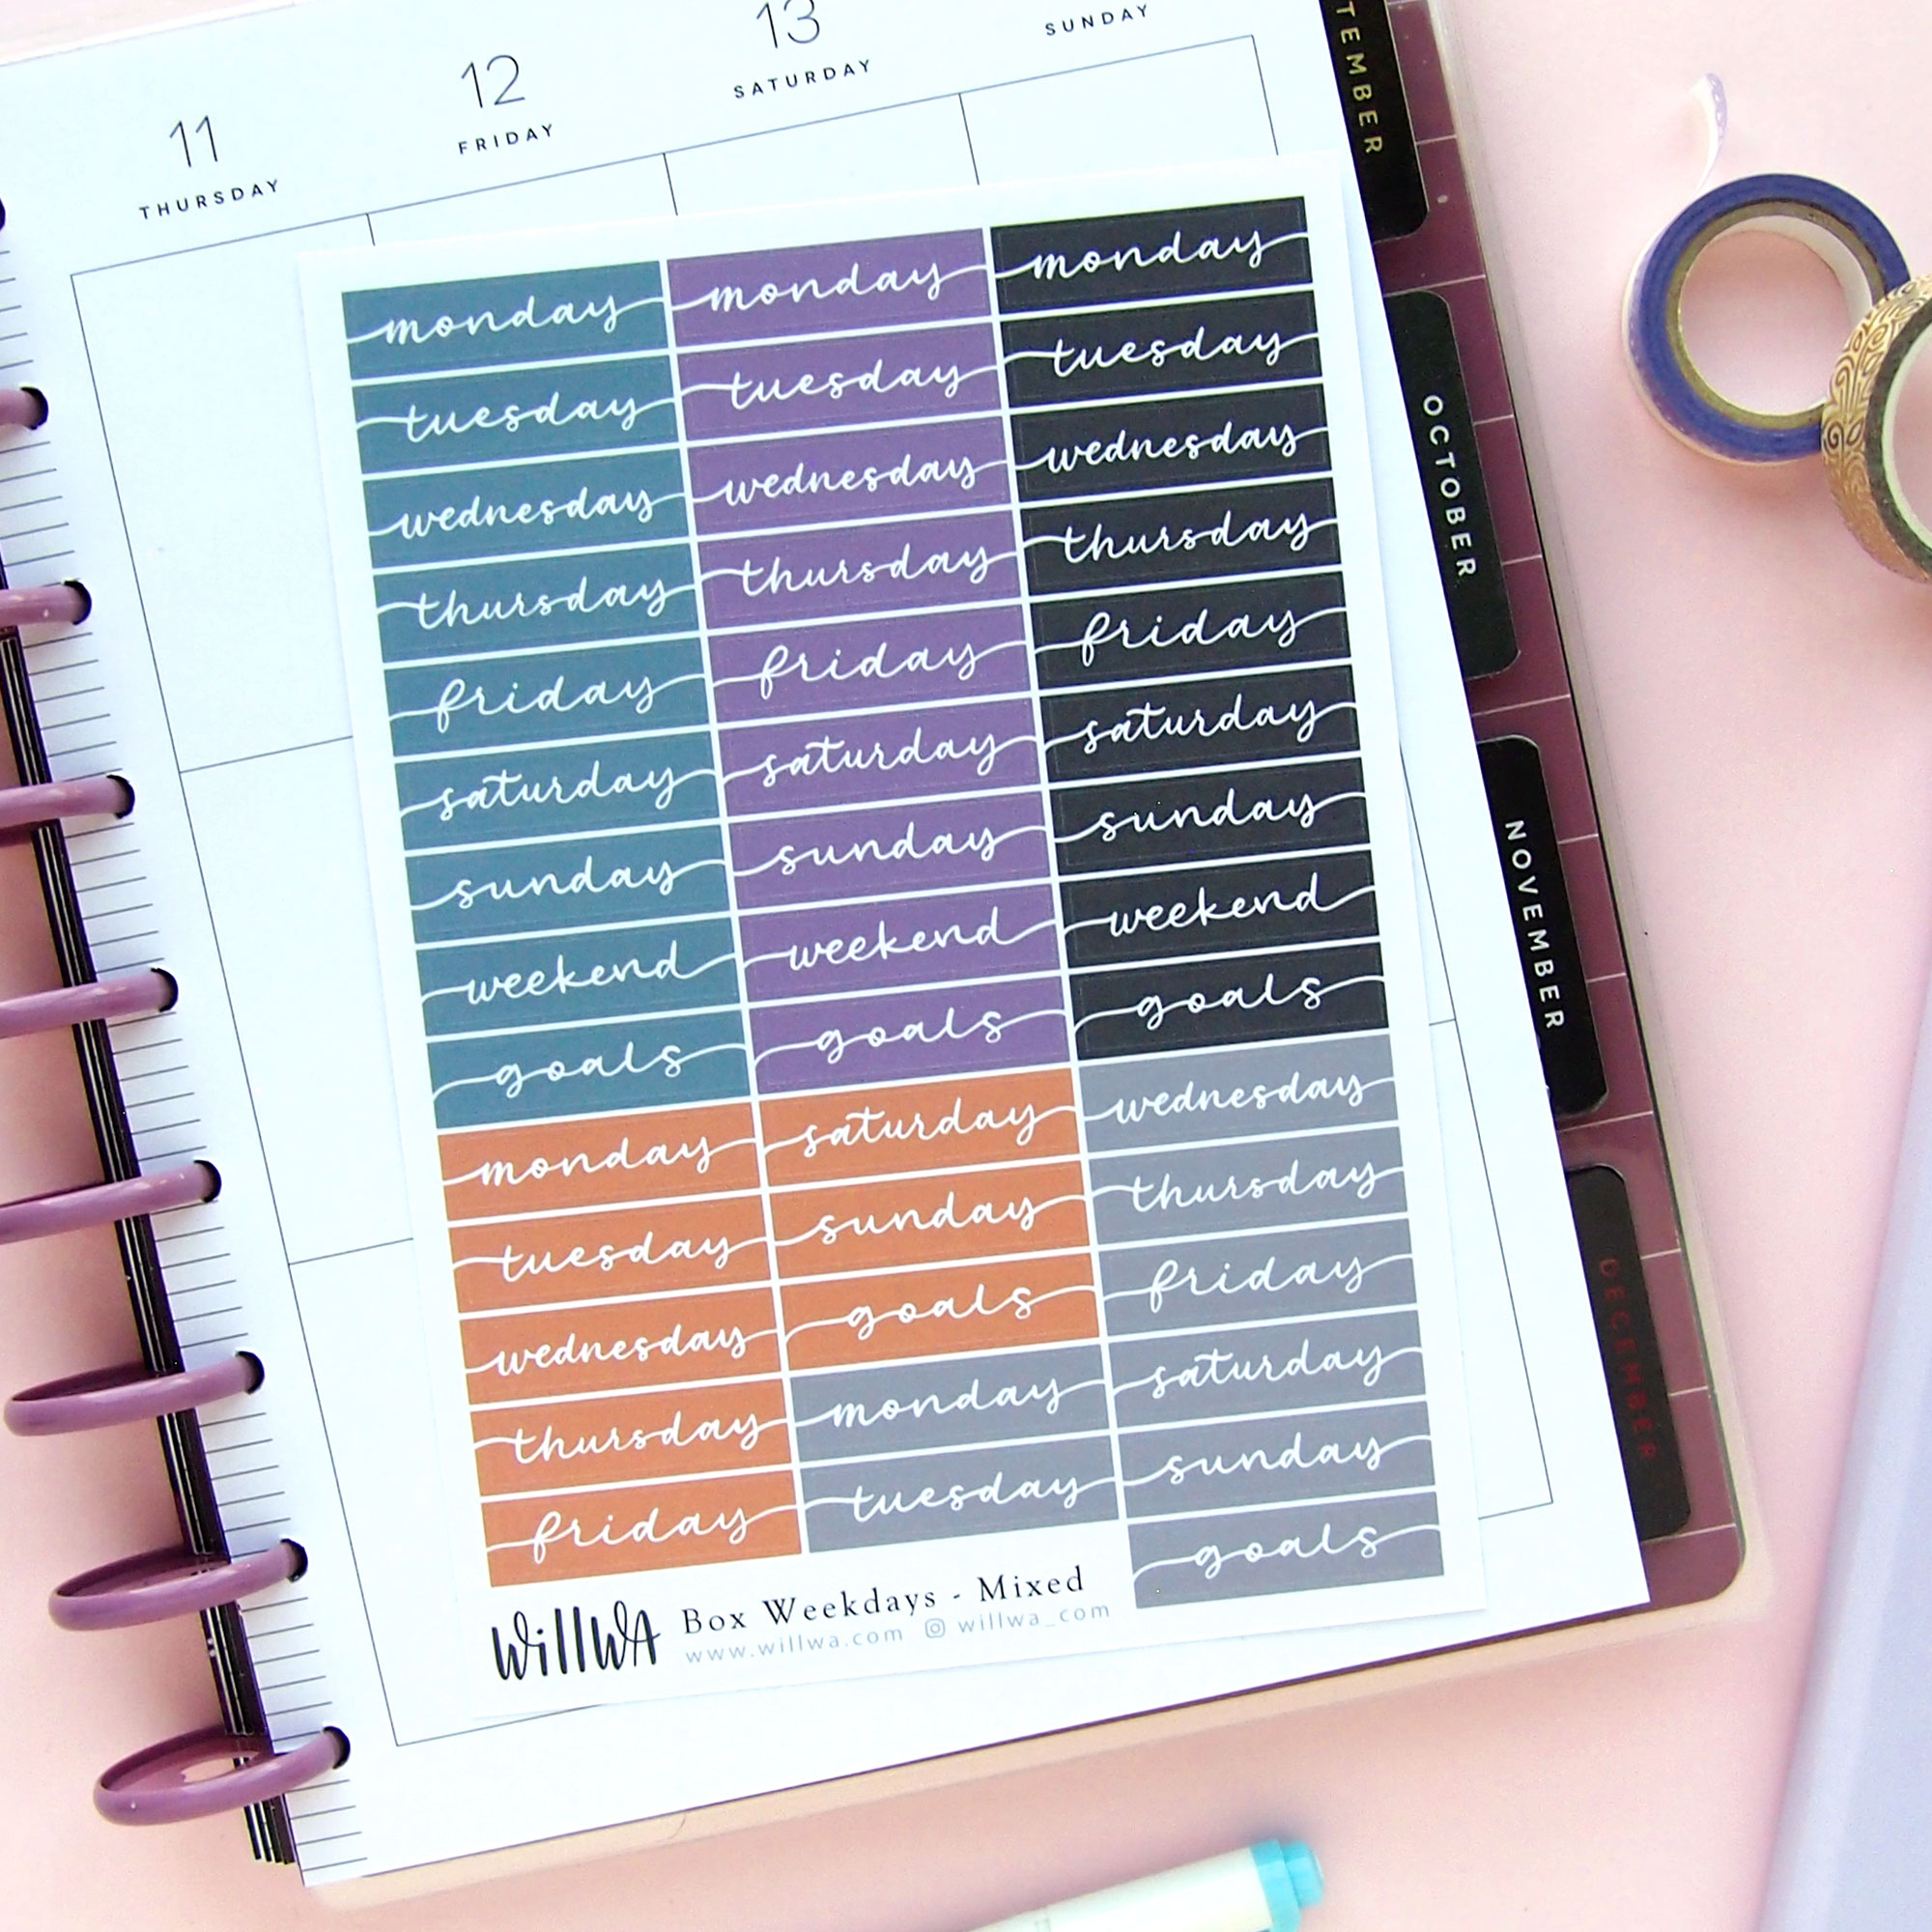 11
THURSDAY
12
FRIDAY
13
SATURDAY
SUNDAY
TEMBER
OCTOBER
NOVEMBER
DECEMBER
monday monday monday
tuesday tuesday tuesday
wednesday wednesday wednesday
thursday thursday thursday
friday friday friday
saturday saturday saturday
sunday sunday sunday
weekend weekend weekend
goals goals goals
monday saturday wednesday
tuesday sunday thursday
wednesday goals friday
thursday monday saturday
friday tuesday sunday
goals
WillWA
Box Weekdays - Mixed
www.willwa.com willwa_com